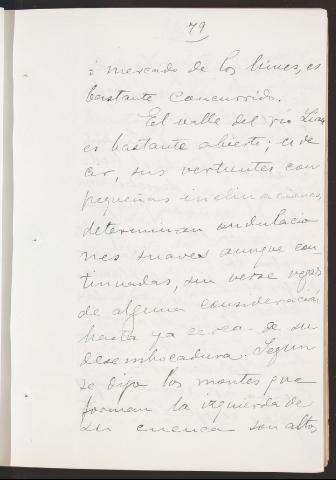 79
ó mercado de los lunes, es
bastante concurrido.
El valle del río
es bastante abierto; es de
cir, sus vertientes con
pequeñas inclinaciones,
determinan ondulacio
nes suaves aunque con-
tinuadas, sin verse vegas
de alguna consideración
hasta ya cerca de su
desembocadura. Segun
se dijo los montes que
forman la izquierda de
su cuenca son altos